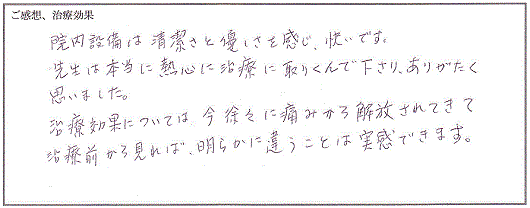 ご感想、治療効果
院内設備は清潔さと優しさを感じ、快いです。
先生は本当に熱心に治療に取りくんで下さり、ありがたく
思いました。
治療効果については、今徐々に痛みから解放されてきて
治療前から見れば、明らかに違うことは実感できます。